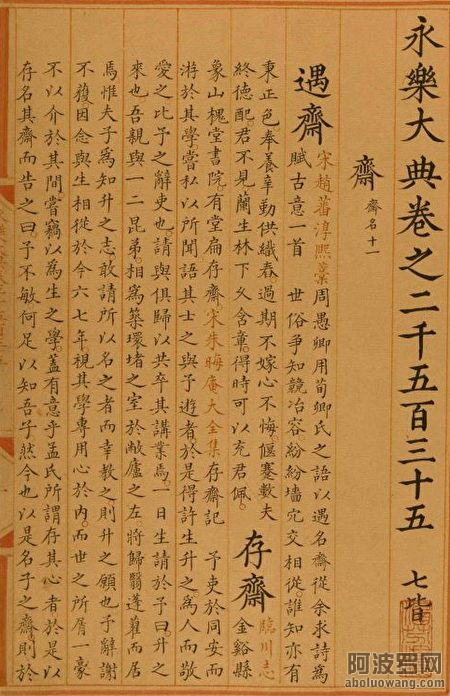 永樂大典卷之二千五百三十五 七皆
齋 齋名十一
遇齋 宋趙蕃淳熙藁 周愚卿用荀卿氏之語以遇名齋從余求詩爲
賦古意一首 世俗爭知競冶容紛紛墻宂交相從誰知亦有
秉正色奉養辛勤供織舂過期不嫁心不悔偃蹇數夫
終德配君不見蘭生林下久含章得時可以充君佩
存齋 臨川志
金谿縣
象山槐堂書院有堂扁存齋宋朱晦庵大全集存齋記 予吏於同安而
游於其學嘗私以所聞語其士之與予遊者於是得許生升之爲人而敬
愛之比予之辭吏也請與俱歸以共卒其講業焉一日生請於予曰升之
來也吾親與一二昆弟相爲築環堵之室於敝廬之左將歸翳蓬藋而居
焉惟夫子爲知升之志敢請所以名之者而幸教之則升之願也予辭謝
不獲因念與生相從於今六七年視其學專用心於内而世之所屑一豪
不以介於其間嘗竊以爲生之學蓋有意乎孟氏所謂存其心者於是以
存名其齋而告之曰予不敏何足以知吾子然今也以是名子之齋則於
阿波罗网
aboluowang.com